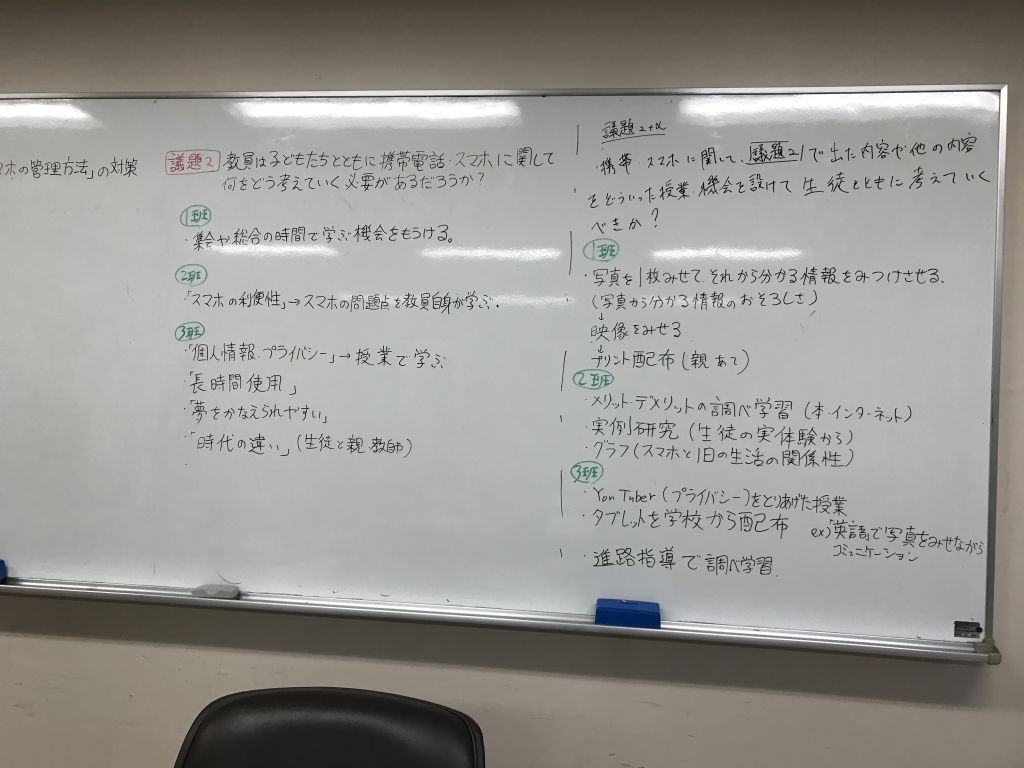 ホの管理方法」の対策
議題2 教員は子どもたちとともに携帯電話・スマホに関して
何をどう考えていく必要があるだろうか?
1班
・集会や総合の時間で学ぶ機会をもうける。
2班
・「スマホの利便性」→スマホの問題点を教員自身が学ぶ.
3班
・「個人情報・プライバシー」→授業で学ぶ
・「長時間使用」
・「夢をかなえられやすい」
・「時代の違い」(生徒と親・教師)
議題2+α
・携帯・スマホに関して、議題2で出た内容や他の内容
をどういった授業・機会を設けて生徒とともに考えていく
べきか?
1班
・写真を1枚みせて、それから分かる情報をみつけさせる、
(写真から分かる情報のおそろしさ)
↓
映像をみせる
↓
プリント配布(親あて)
2班
・メリット・デメリットの調べ学習(本・インターネット)
・実例研究(生徒の実体験から)
・グラフ(スマホと1日の生活の関係性)
3班
・YouTuber(プライバシー)をとりあげた授業
・タブレットを学校から配布 ex)英語で写真をみせながら
コミュニケーション
・進路指導で調べ学習.